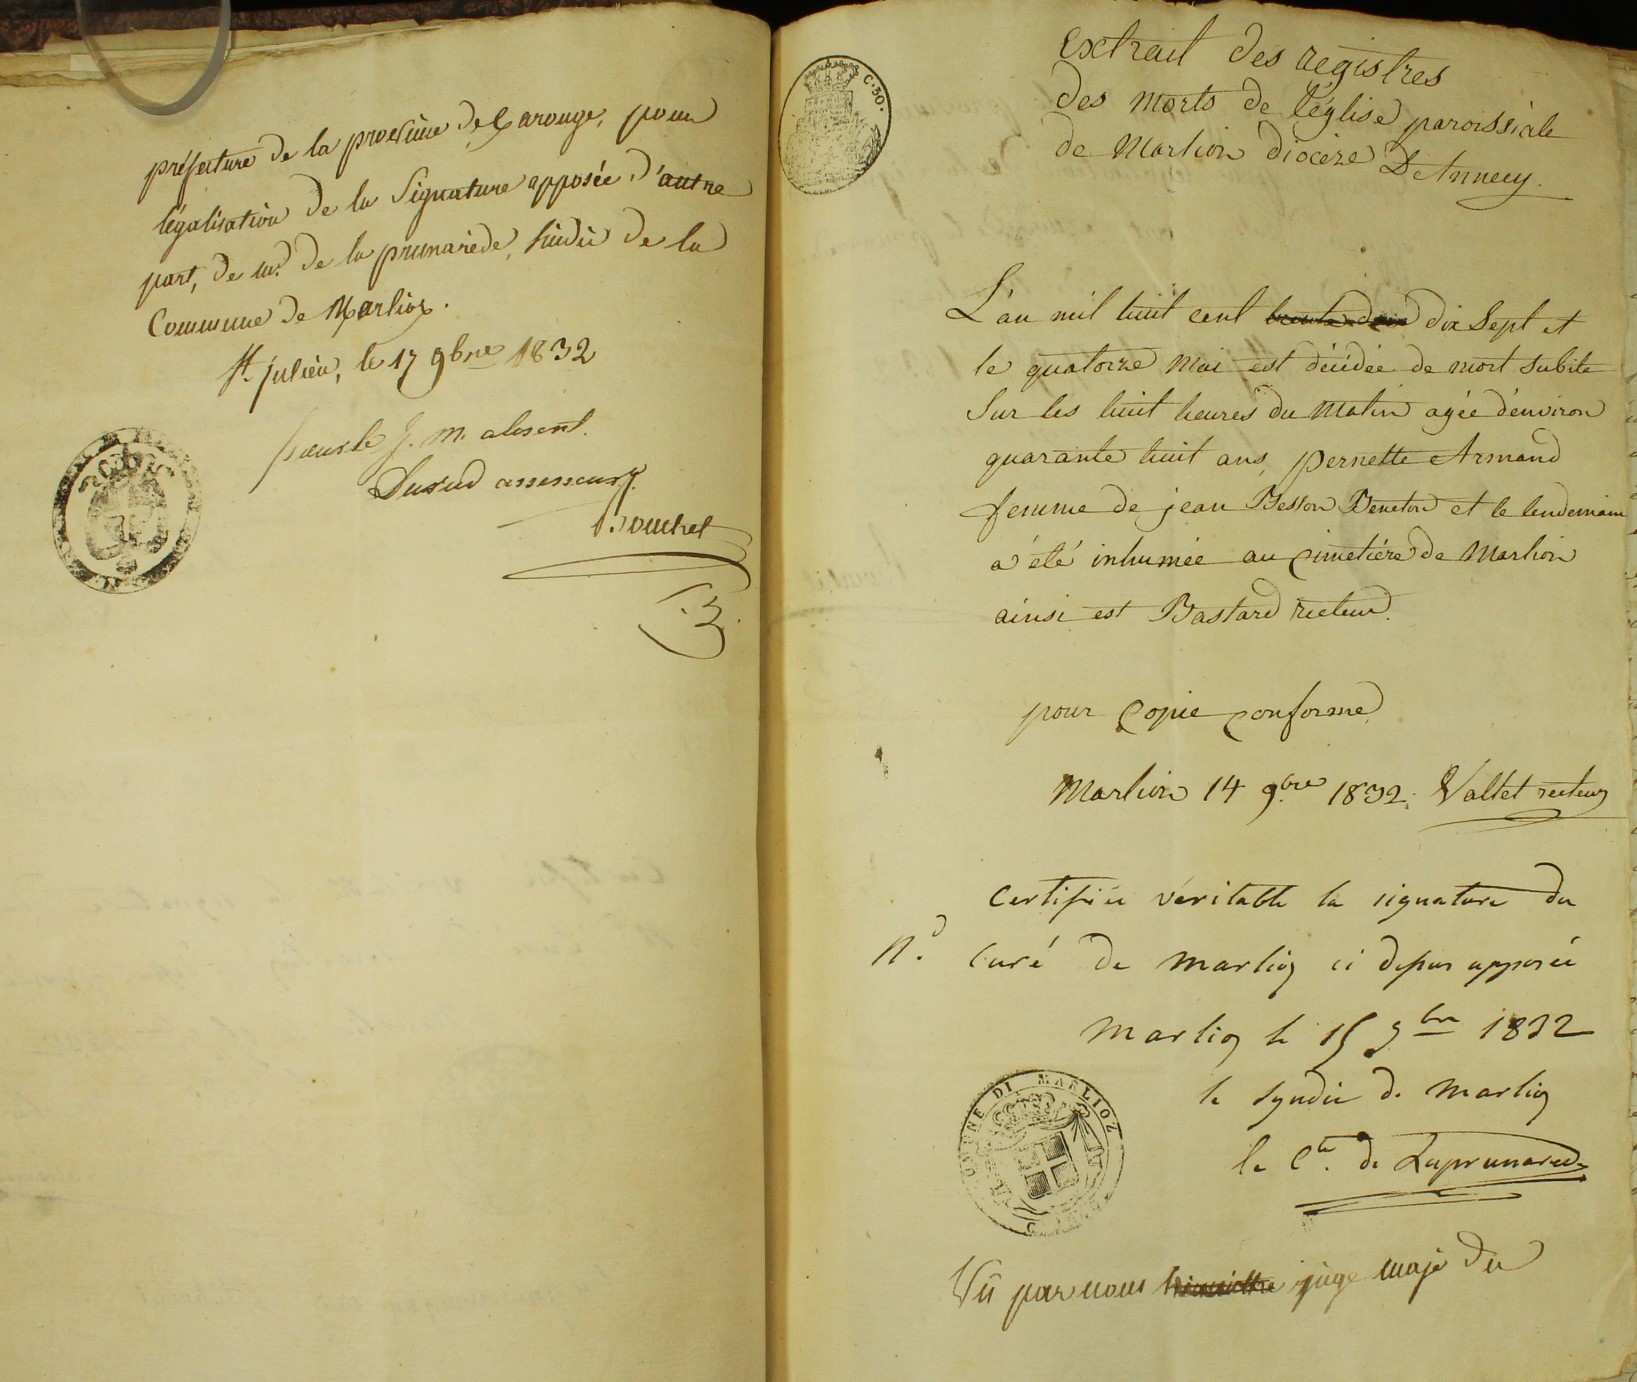 préfecture de la province de Carouge, pour
légalisation de la Signature apposée d'autre
part, de mr. de la prunarède, sindic de la
Commune de Marlioz.
St. julien, le 17 9bre 1832
pour le J. M. absent.
Dusud assesseur
C. 50.
extrait des registres
des morts de l'église paroissiale
de Marlion diocèze D'Annecy.
L'an mil huit cent trente deux dix Sept et
le quatorze Mai est décédée de mort subite
Sur les huit heures du Matin agée d'environ
quarante huit ans, pernette Armand
femme de jean Besson Beneton et le lendemain
a été inhumée au cimetière de Marlion
ainsi est Bastard recteur.
pour copie conforme
Marlion 14 9.bre 1832. Vallet recteur
certifiée véritable la signature du
N.o curé de Marlioz ci dessus apposée
Marlioz le 15 9bre 1832
le syndic de Marlioz
le Cte. de Laprunarede
COMUNE DI MARLIOZ
Vu par nous juge maje du